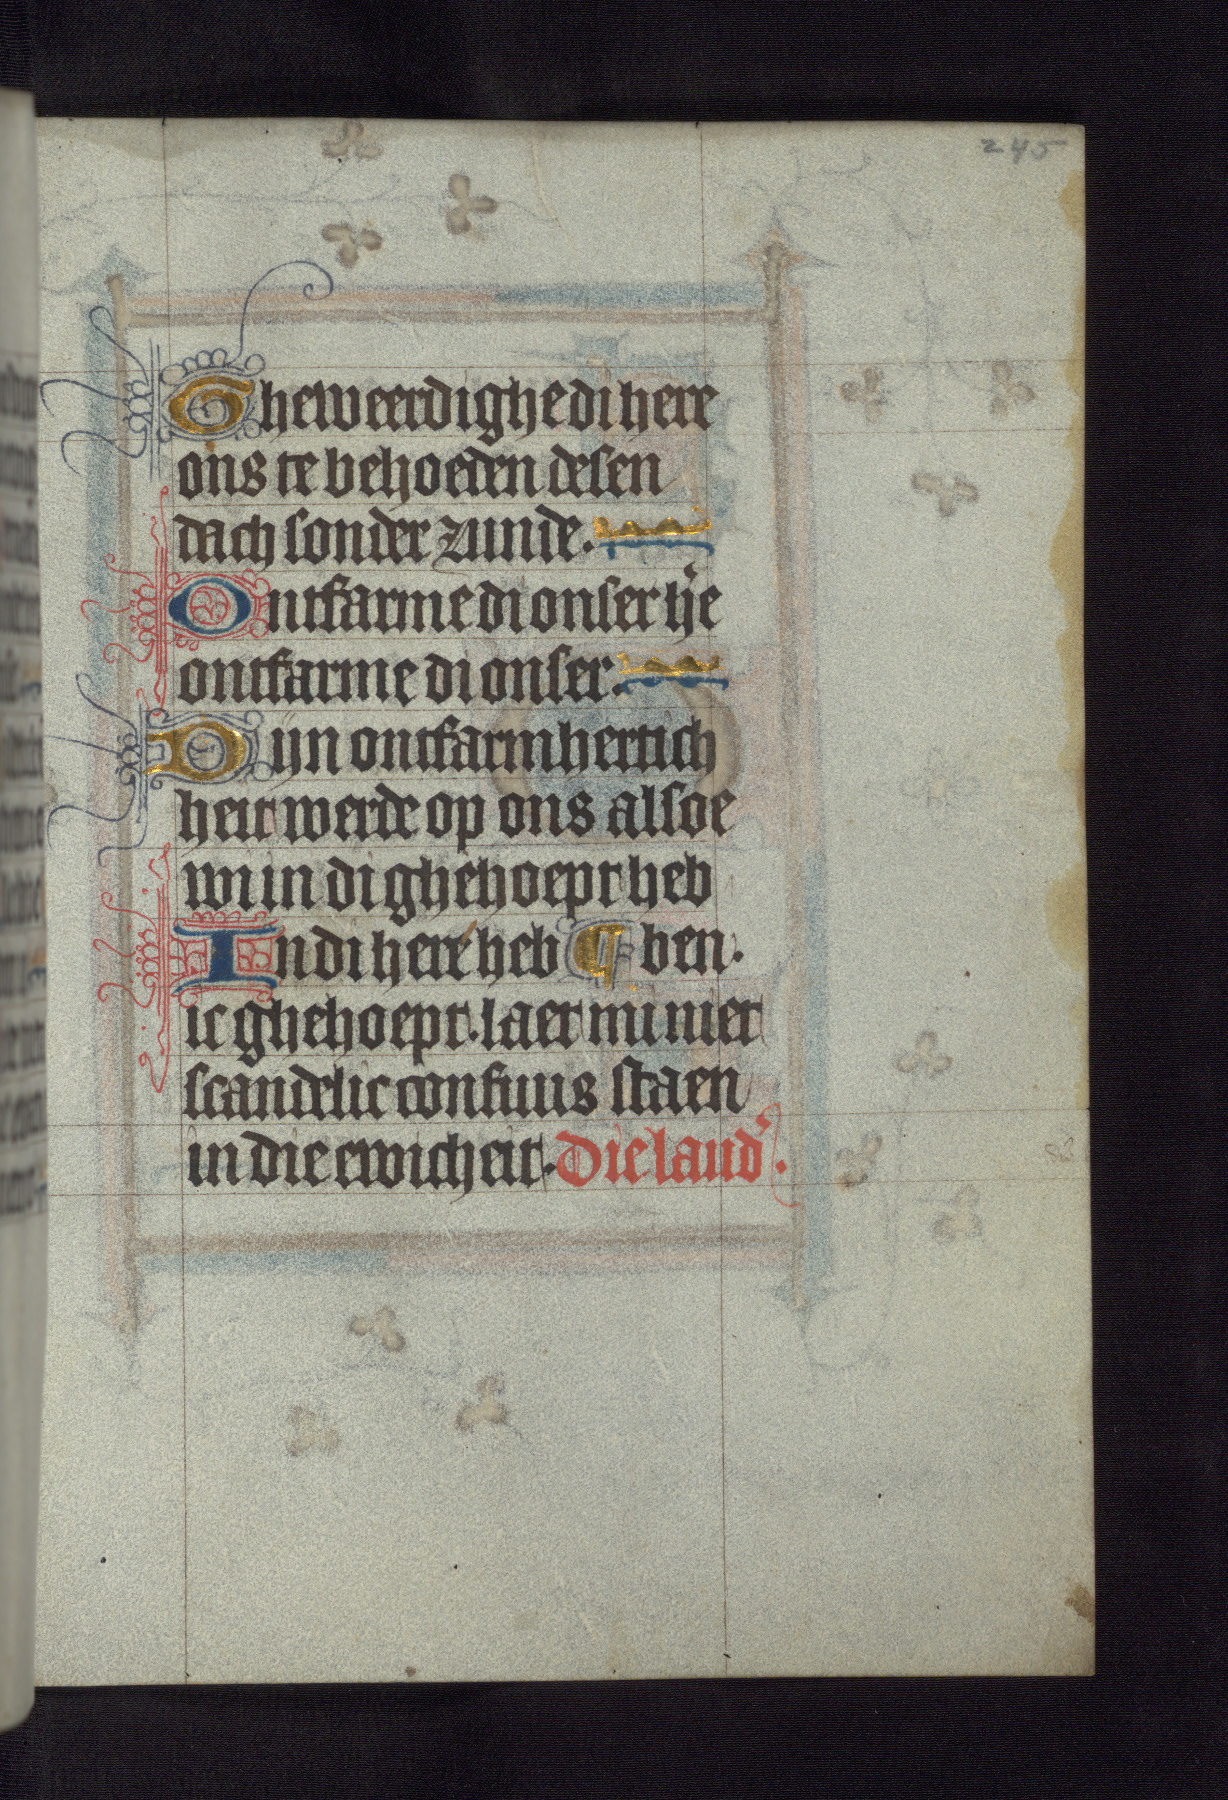 245
Gheweerdighe di here
ons te behoeden desen
dach sonder zunde.
Ontfarme di onser h̾e
ontfarme di onser.
Dijn ontfarmhertich
heit werde op ons alsoe
wi in di ghehoept heb
In di here heb ¶ ben.
ic ghehoept. laet mi niet
scandelic confuus staen
in die ewicheit. Die laud᾽.